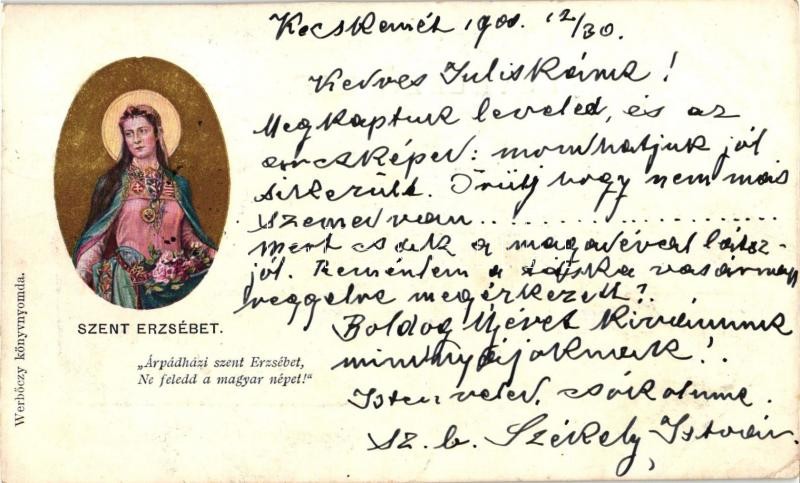 Kecskemét 1900. 12/30.
Kedves Juliskánk!
Megkaptuk leveled, és az
arczképet: mondhatjuk jól
sikerült. Örülj hogy nem más
szemed van....................
mert csak a magadéval látsz
jól. Reméntem a táska vasárnap
reggelre megérkezett?.
Boldog Újévet kivánunk
mindnyájoknak!.
Isten veled, csókolunk.
Sz. b. Székely István.
SZENT ERZSÉBET.
„Árpádházi szent Erzsébet,
Ne feledd a magyar népet!"
Werbőczy könyvnyomda.